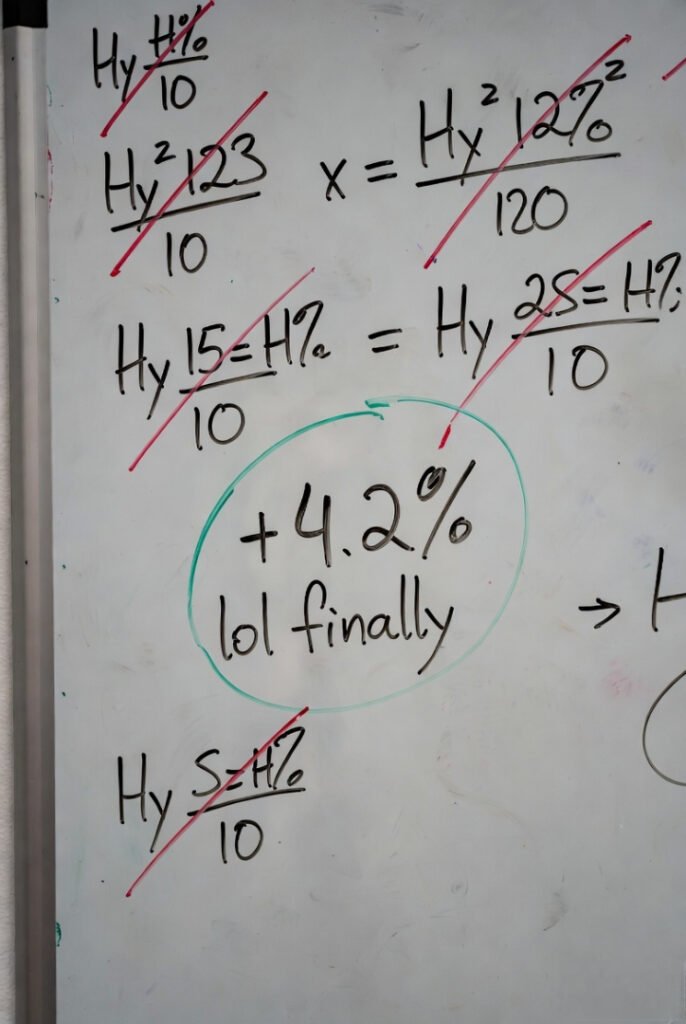 Hy H%/10
Hy² 123/10 x = Hy² 12%²/120
Hy 15=H%/10 = Hy 25=H%/10
+4.2%
lol finally
→ H
Hy S=H%/10